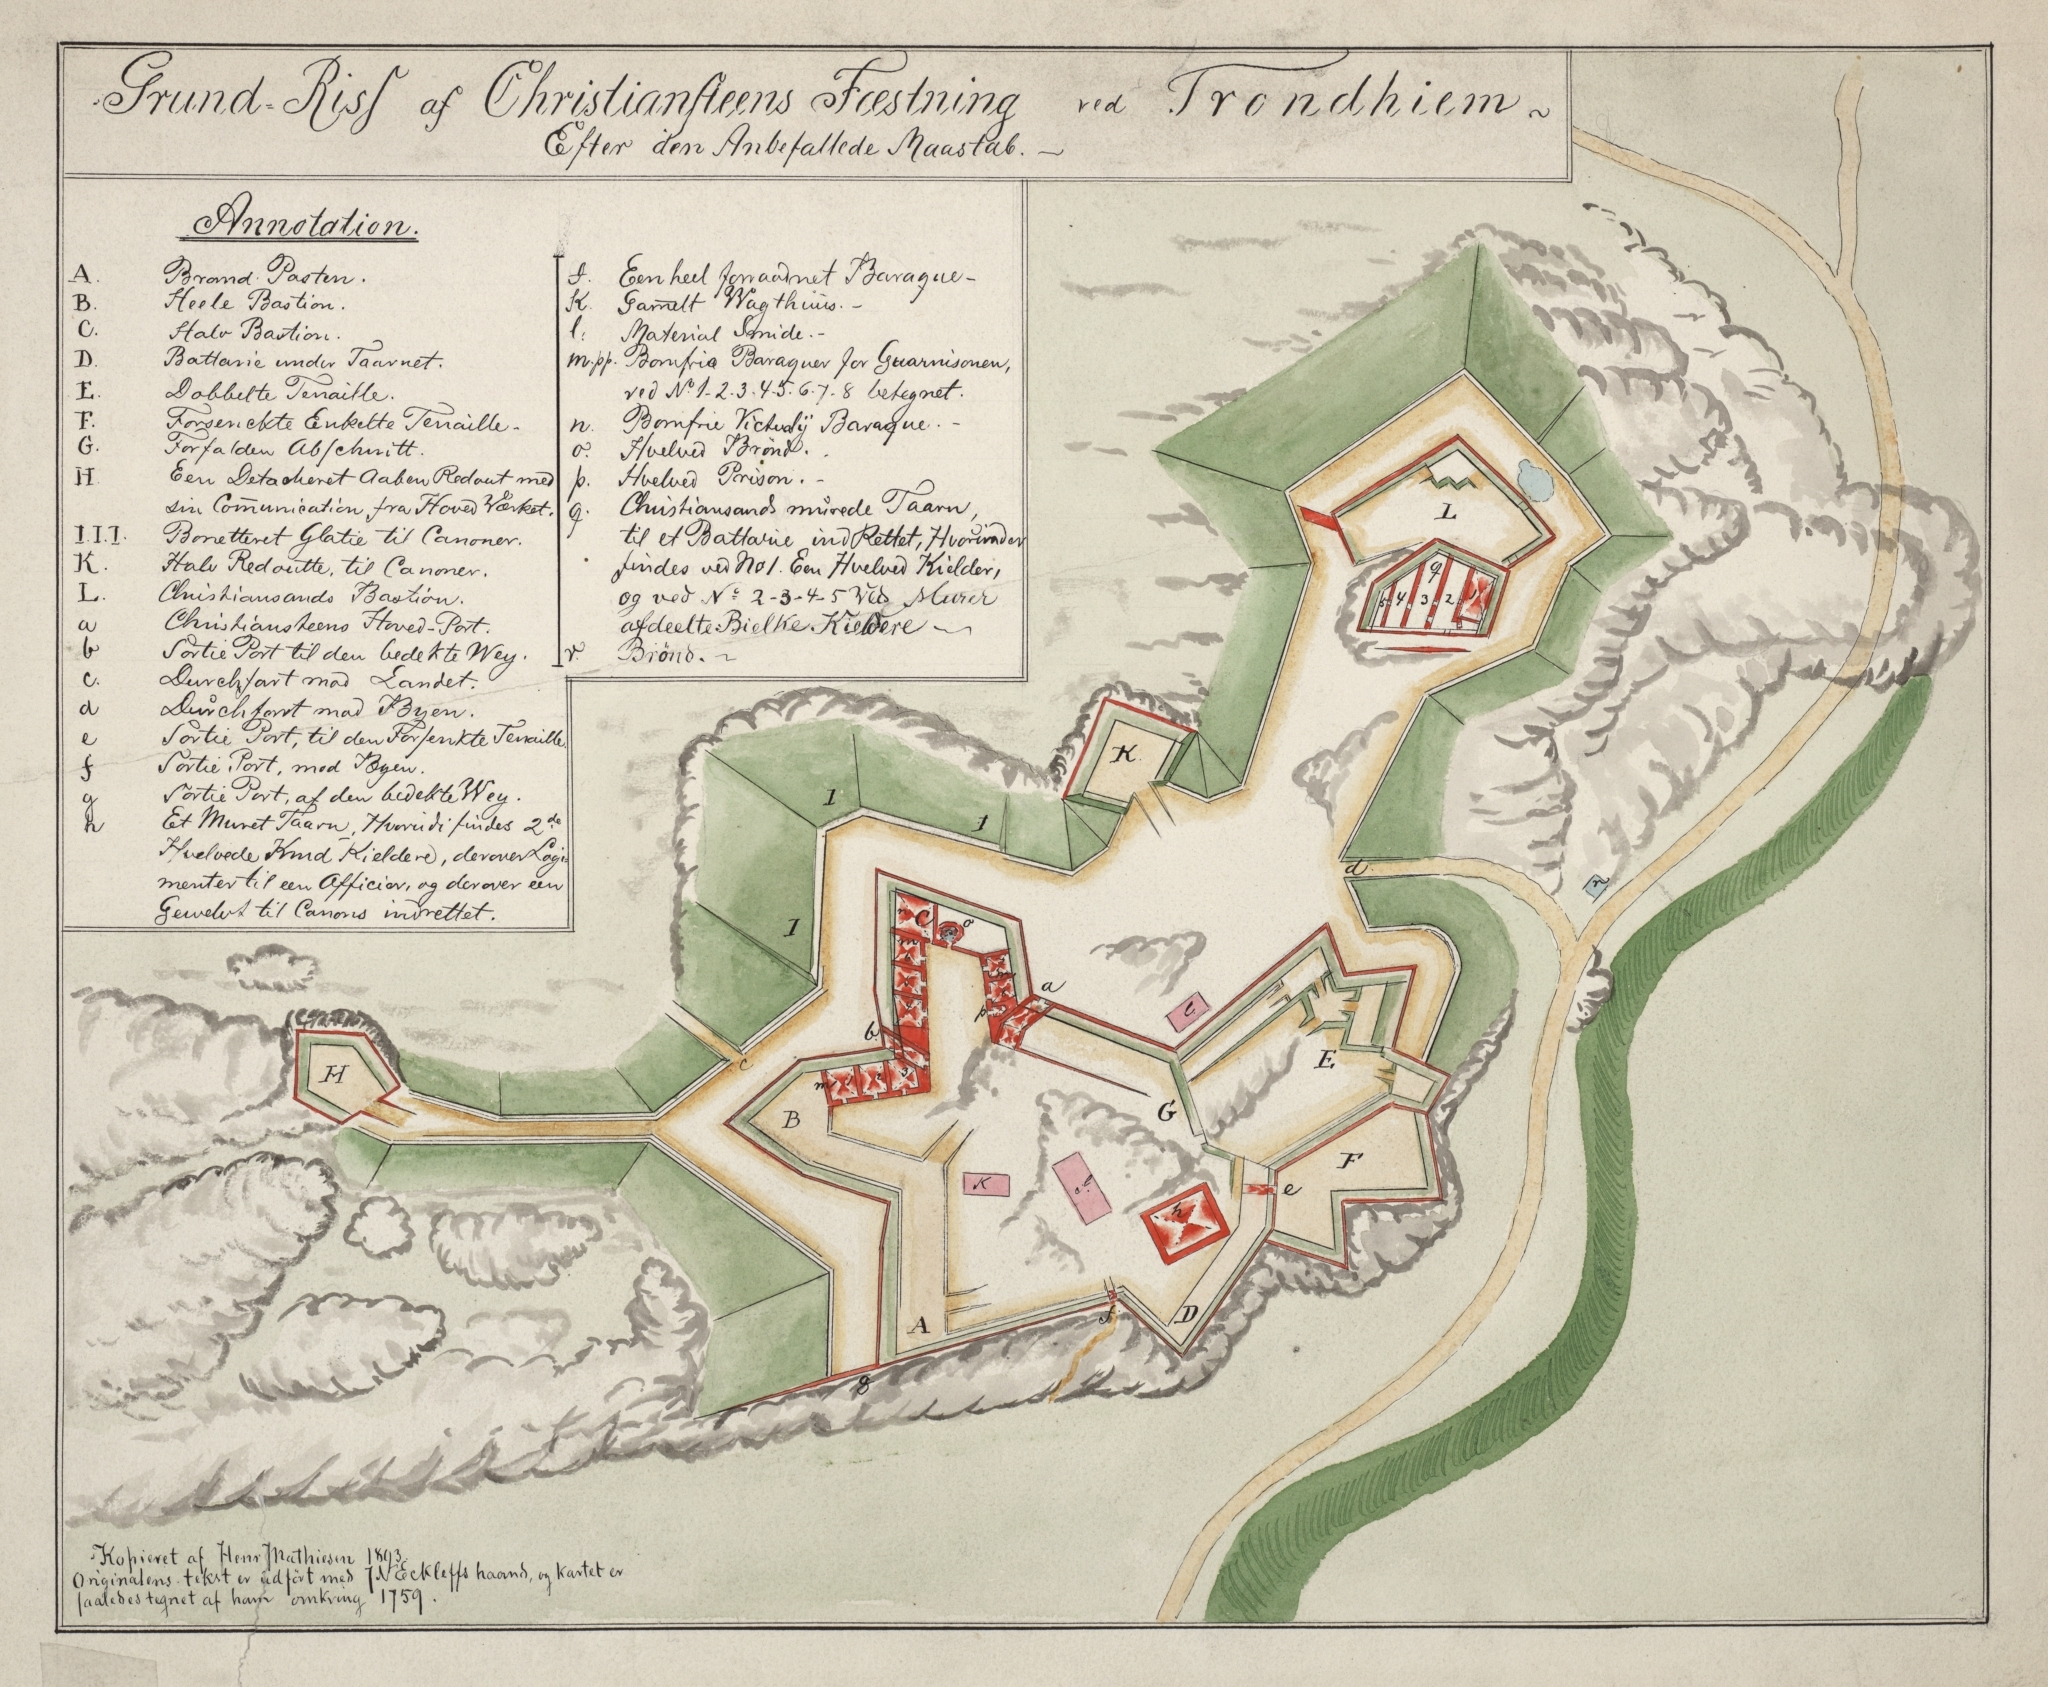 Grund-Riss af Christiansteens Fæstning ved Trondhiem
Efter den Anbefallede Maastab.
Annotation.
A. Brand Pasten.
B. Heele Bastion.
C. Halv Bastion.
D. Battarie under Taarnet.
E. Dobbelte Tenaille.
F. Forsenckte Enkelte Tenaille.
G. Forfalden Abschnitt.
H. Een Detacheret Aaben Redout med
sin Communication fra Hoved Værket.
I.I.I. Bonetteret Glatie til Canoner.
K. Halv Redoutte, til Canoner.
L. Christiansands Bastion.
a Christiansteens Hoved-Port.
b Sortie Port til den bedekte Wey.
c. Durchfart mod Landet.
d Durchfart mod Byen.
e Sortie Port, til den Forsenkte Tenaille
f Sortie Port, mod Byen.
g Sortie Port, af den bedekte Wey.
h Et Muret Taarn, Hvorudi findes 2de
Hvelvede Krud Kieldere, derover Logi-
menter til een Officier, og derover een
Gewelvt til Canons indrettet.
I. Een heel forraadnet Baraque-
K. Gamelt Wagthuus.-
l. Material Smide.-
m.pp. Bomfrie Baraquer for Guarnisonen,
ved No 1-2-3-4-5-6-7-8 betegnet.
n. Bomfrie Victualij Baraque.-
o. Hvelved Brönd.
p. Hvelved Prison.-
q. Christiansands murede Taarn,
til et Battarie ind Rettet, Hvorunder
findes ved No 1. Een Hvelved Kielder,
og ved No 2-3-4-5 Ved Murer
afdeelte Bielke Kieldere
r. Brönd.
L
q
5 4 3 2 1
K
I
I
I
d
r
C
o
m
a
p
b
l
c
H
E
m 1 2 3
B
G
F
K
I
h
e
A
f
D
g
Kopieret af Henr Mathiesen 1893
Originalens tekst er udfört med J.N Eckleffs haand, og kartet er
saaledes tegnet af ham omkring 1759.